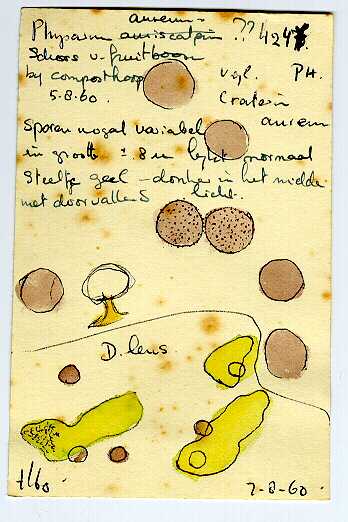 aureum
Physarum auriscalpium ?? 424
Schors v. fruitboom
bij composthoop vgl. PH.
5.8.60. Crateri
aureum
Sporen nogal variabel
in grootte ± 8 u lijkt normaal
Steeltje geel – donker in het midde
met doorvallend licht.
D. lens
7-8-60.